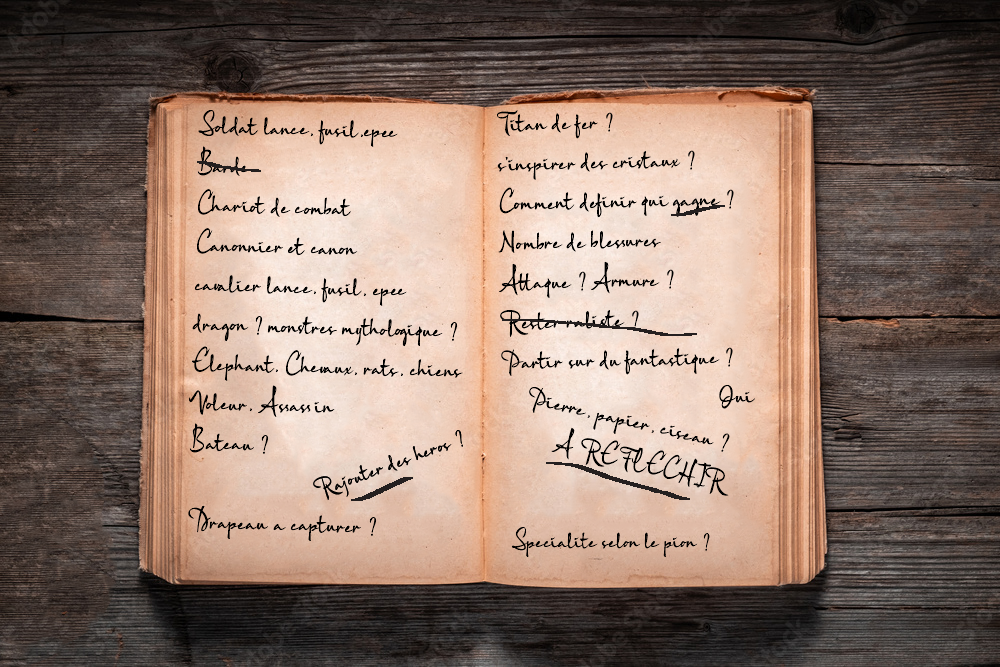 Soldat lance, fusil, epee
Barde
Chariot de combat
Canonnier et canon
cavalier lance, fusil, epee
dragon ? monstres mythologique ?
Elephant, Chevaux, rats, chiens
Voleur, Assassin
Bateau ?
Rajouter des heros ?
Drapeau a capturer ?
Titan de fer ?
s'inspirer des cristaux ?
Comment definir qui gagne ?
Nombre de blessures
Attaque ? Armure ?
Rester raliste ?
Partir sur du fantastique ?
Oui
Pierre, papier, ciseau ?
A REFLECHIR
Specialite selon le pion ?